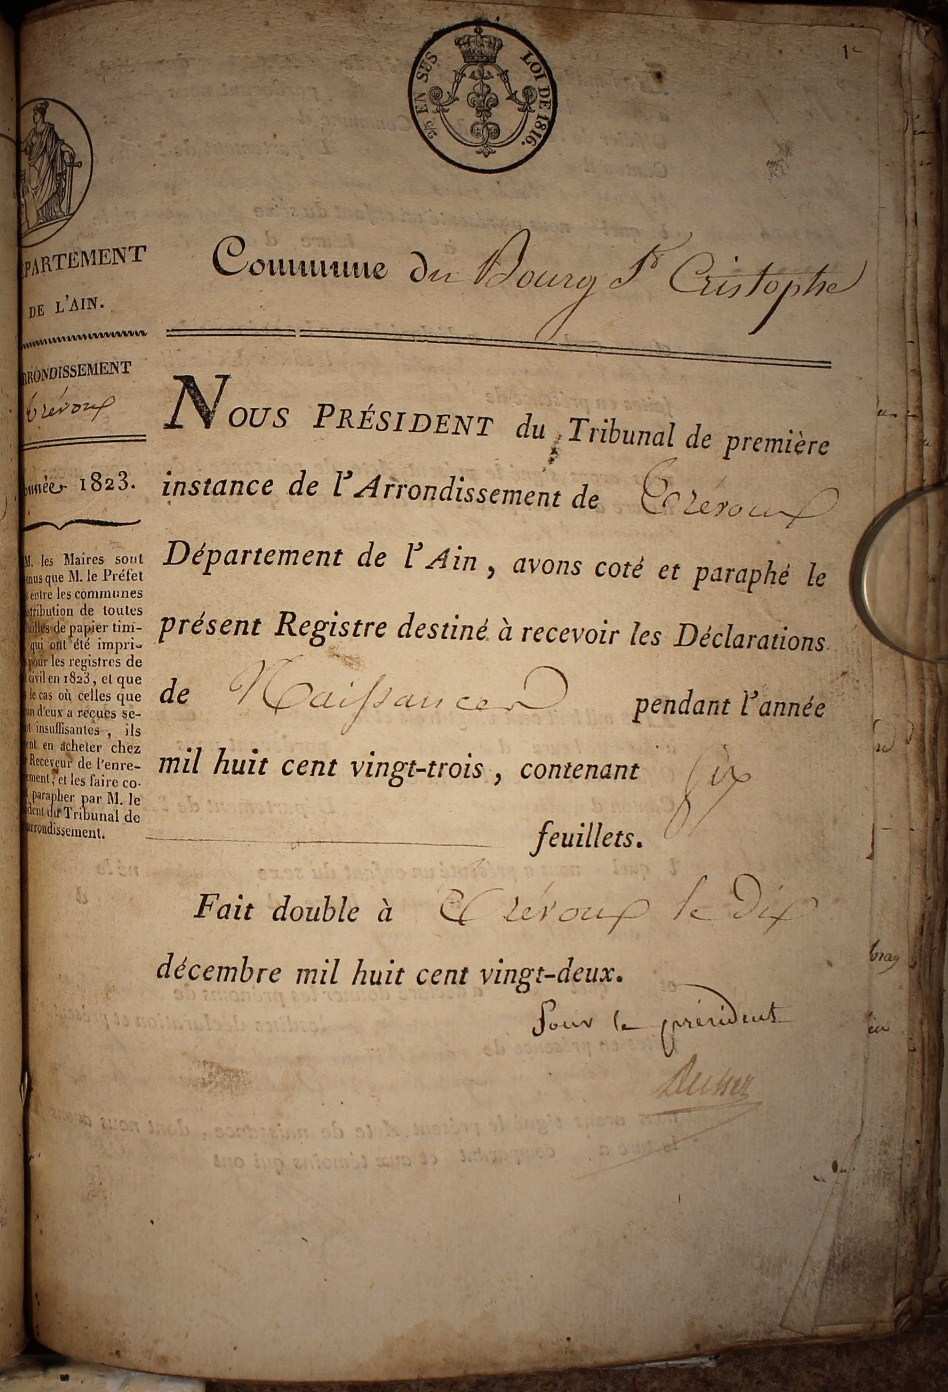 1e
EN SES
LOI DE 1816.
PARTEMENT
DE L'AIN.
RRONDISSEMENT
Trévoux
nnée 1823.
M. les Maires sont
nus que M. le Préfet
entre les communes
tribution de toutes
uilles de papier tim-
qui ont été impri-
pour les registres de
civil en 1823, et que
le cas où celles que
un d'eux a reçues se-
t insuffisantes, ils
nt en acheter chez
Receveur de l'enre-
ement, et les faire co-
parapher par M. le
dent du Tribunal de
rrondissement.
Commune du Bourg St Cristophe
NOUS PRÉSIDENT du Tribunal de première
instance de l'Arrondissement de Trévoux
Département de l'Ain, avons coté et paraphé le
présent Registre destiné à recevoir les Déclarations
de Naissances pendant l'année
mil huit cent vingt-trois, contenant six
feuillets.
Fait double à Trévoux le dix
décembre mil huit cent vingt-deux.
Pour le président